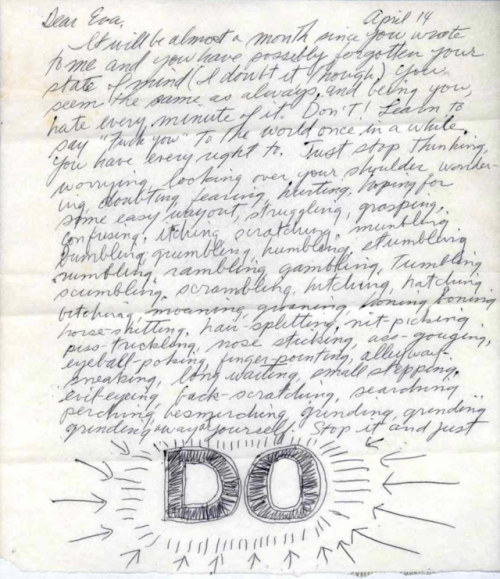 Dear Eva, April 14
It will be almost a month since you wrote
to me and you have possibly forgotten your
state of mind (I doubt it though). You
seem the same as always, and being you,
hate every minute of it. Don't! Learn to
say "Fuck You" to the world once in a while.
You have every right to. Just stop thinking,
worrying, looking over your shoulder, wonder-
ing, doubting, fearing, hurting, hoping for
some easy way out, struggling, grasping,
confusing, itching, scratching, mumbling,
bumbling, grumbling, humbling, stumbling,
rumbling, rambling, gambling, tumbling,
scumbling, scrambling, hitching, hatching,
bitching, moaning, groaning, honing, boning,
horse-shitting, hair-splitting, nit-picking,
piss-trickling, nose sticking, ass-gouging,
eyeball-poking, finger-pointing, alleyway-
sneaking, long waiting, small stepping,
evil-eyeing, back-scratching, searching,
perching, besmirching, grinding, grinding
grinding away at yourself. Stop it and just
DO